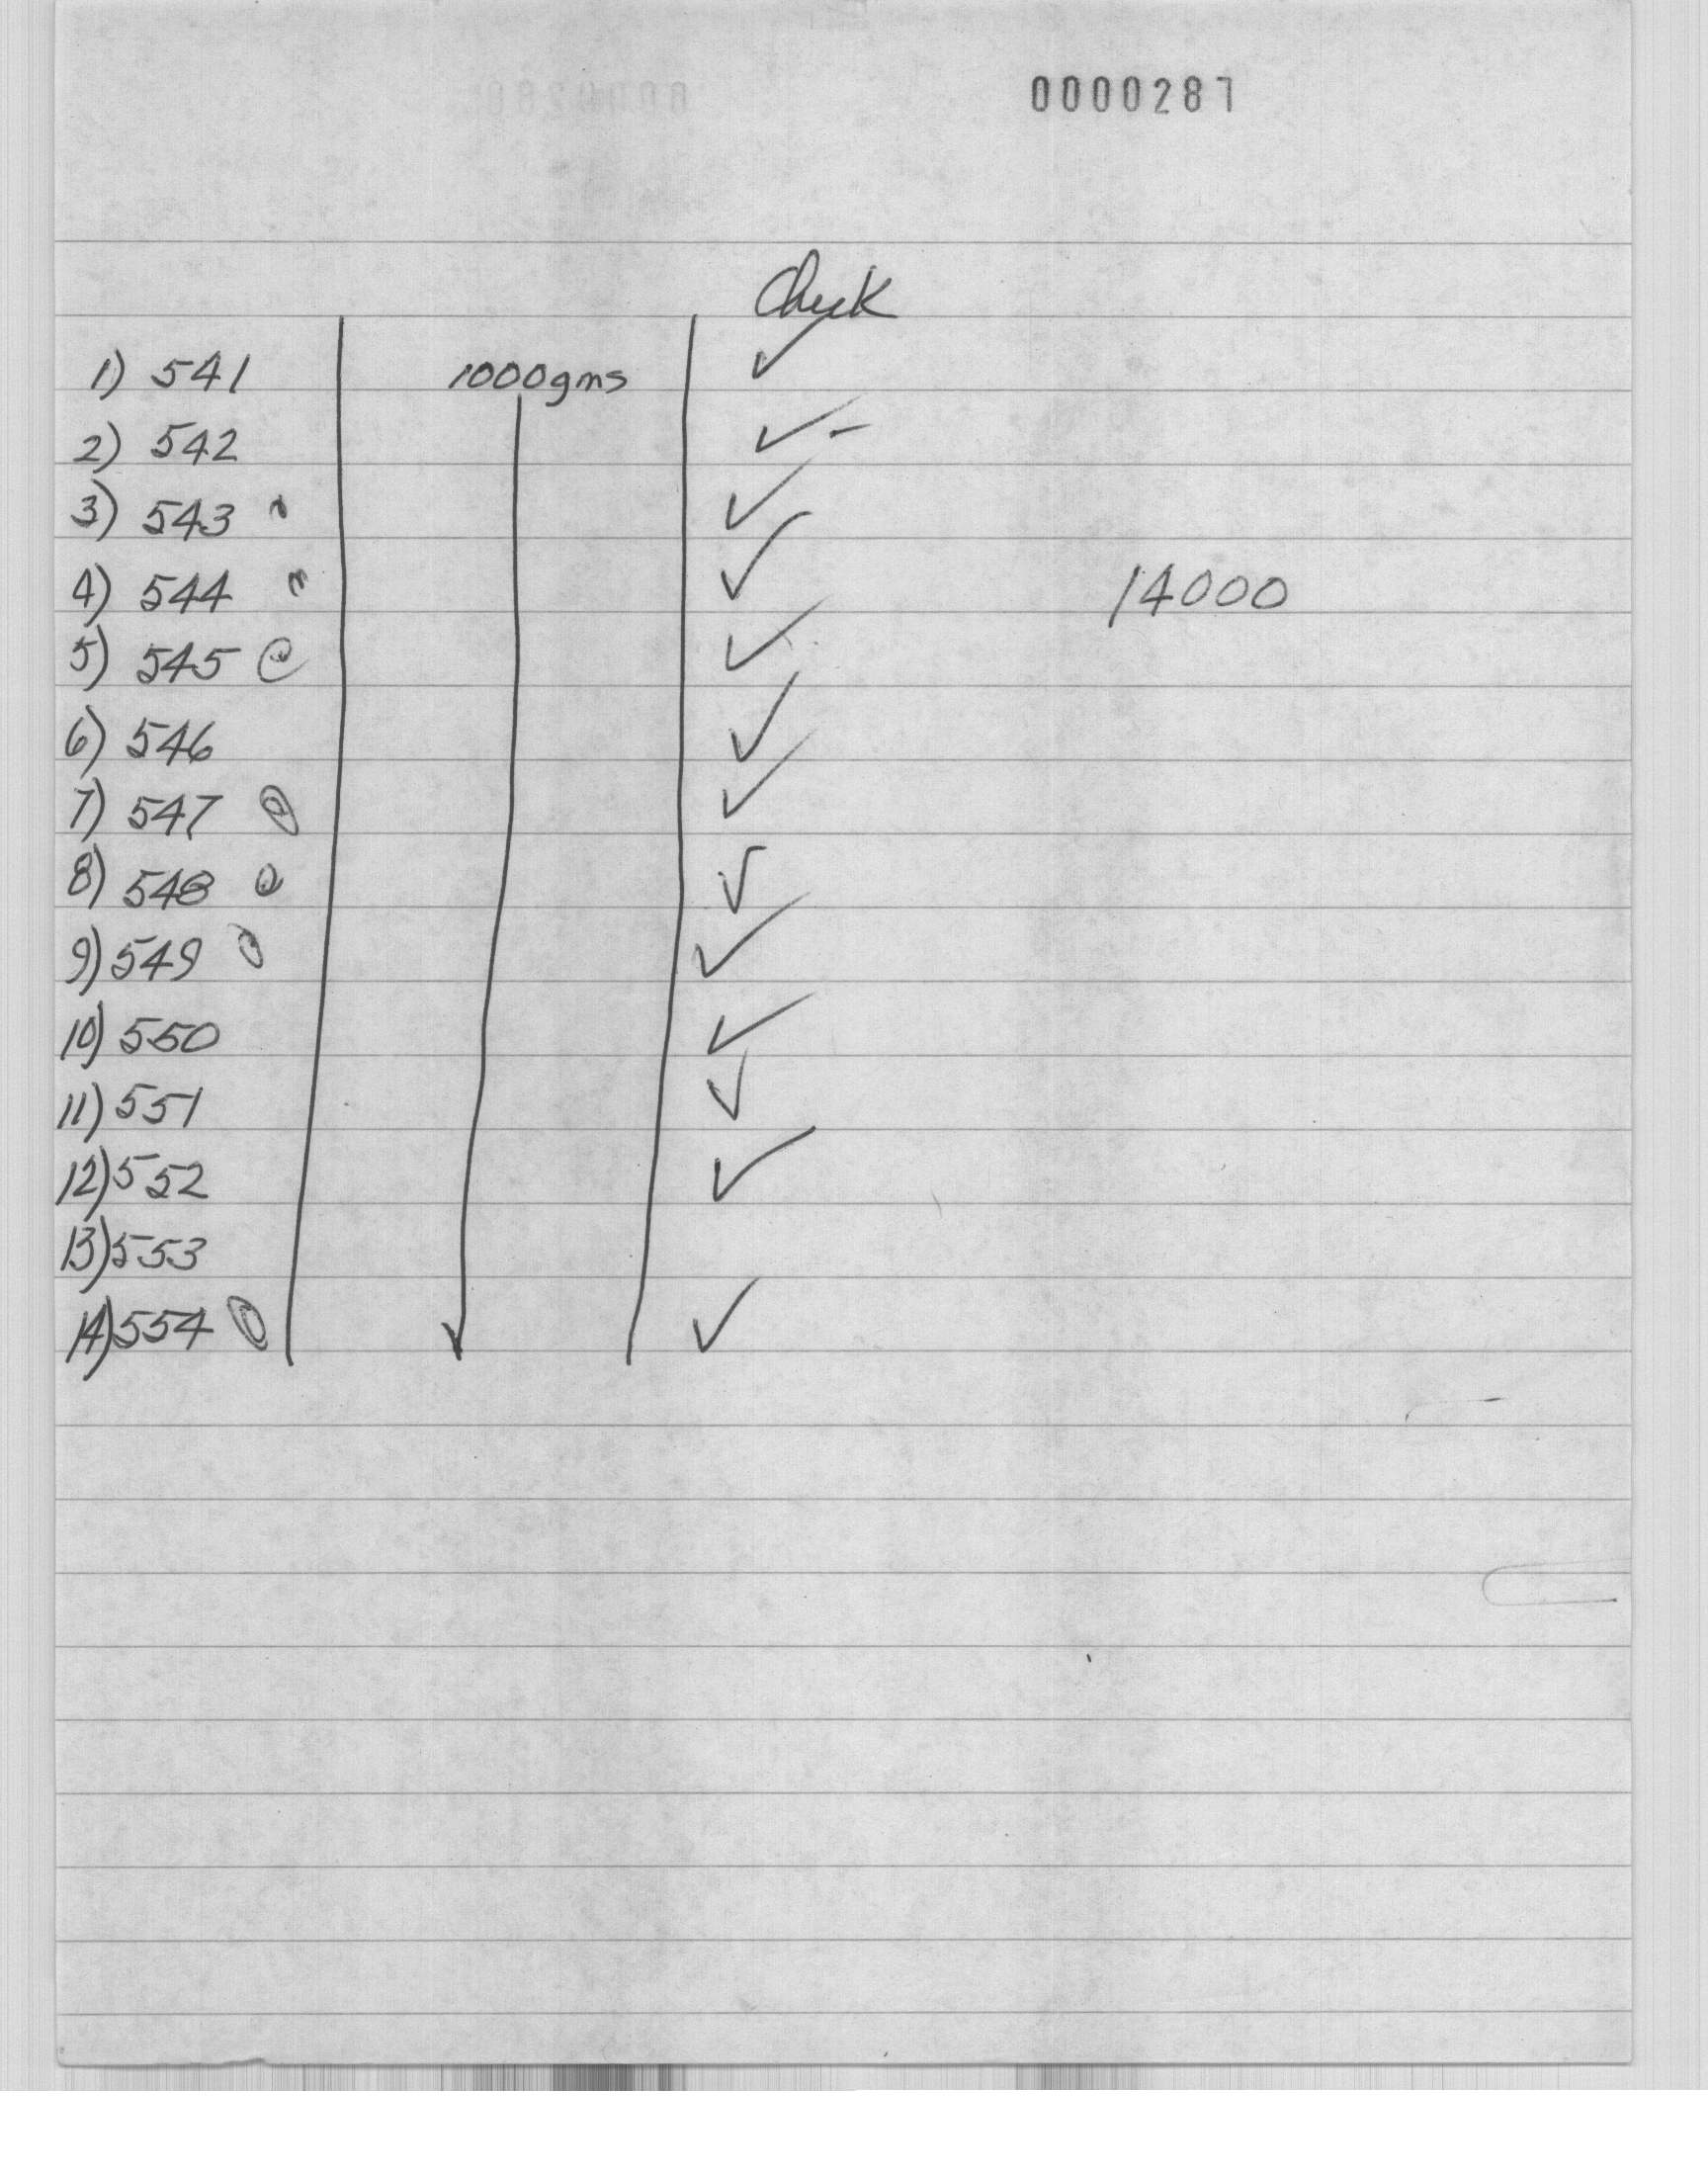 0000287
Check
1) 541 1000gms ✓
2) 542 ✓ -
3) 543 ✓
4) 544 ✓ 14000
5) 545 ✓
6) 546 ✓
7) 547 ✓
8) 548 ✓
9) 549 ✓
10) 550 ✓
11) 551 ✓
12) 552 ✓
13) 553
14) 554 ✓